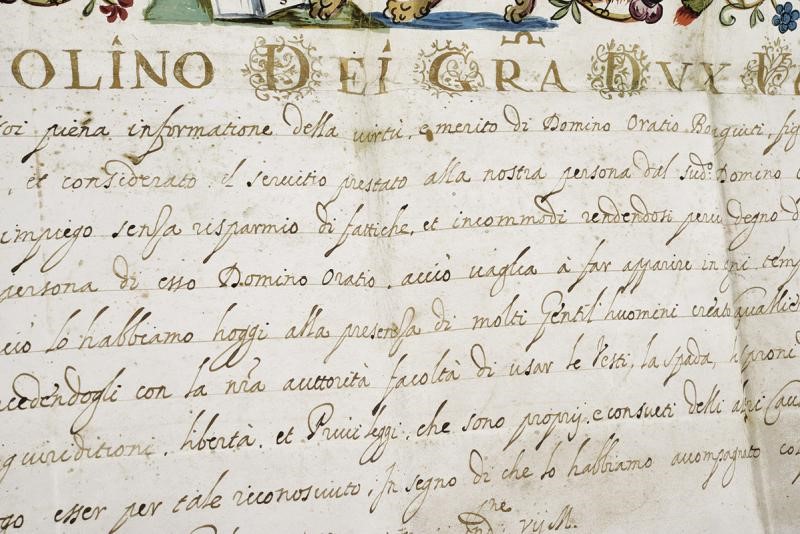 OLINO DEI GRA DVX
piena informatione della virtù, e merito di Domino Oratio
, et considerato il servitio prestato alla nostra persona dal sud.º Domino
impiego senza risparmio di fattiche, et incommodi rendendosi però degno
persona di esso Domino Oratio, acciò vaglia à far apparire in ogni temp
ciò lo habbiamo hoggi alla presenza di molti Gentil'huomini creato Cavallier
cedendogli con la nra auttorità facoltà di usar le Vesti, la spada,
liberta, et Privileggi, che sono proprij, e consueti delli altri Cav
esser per tale riconosciuto. In segno di che lo habbiamo accompagnato co